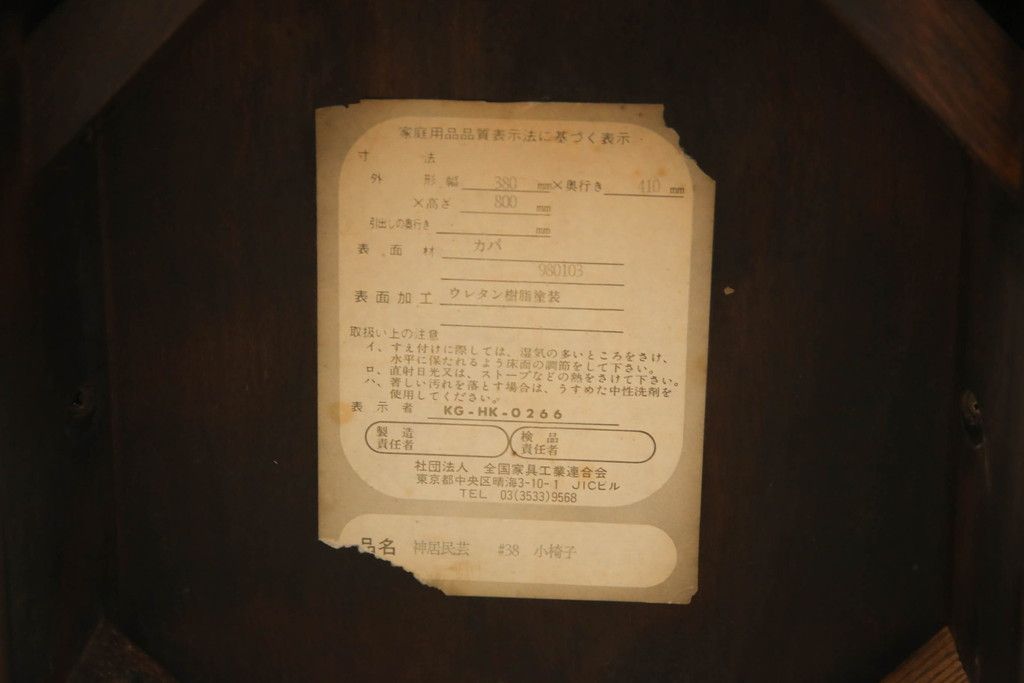 家庭用品品質表示法に基づく表示
寸法
外形幅 380 mm×奥行き 410 mm
×高さ 800 mm
引出しの奥行き mm
表面材 カバ
980103
表面加工 ウレタン樹脂塗装
取扱い上の注意
イ、すえ付けに際しては、湿気の多いところをさけ、
水平に保たれるよう床面の調節をして下さい。
ロ、直射日光又は、ストーブなどの熱をさけて下さい。
ハ、著しい汚れを落とす場合は、うすめた中性洗剤を
使用してください。
表示者 KG-HK-0266
製造 検品
責任者 責任者
社団法人 全国家具工業連合会
東京都中央区晴海3-10-1 JICビル
TEL 03(3533)9568
品名 神居民芸 #38 小椅子